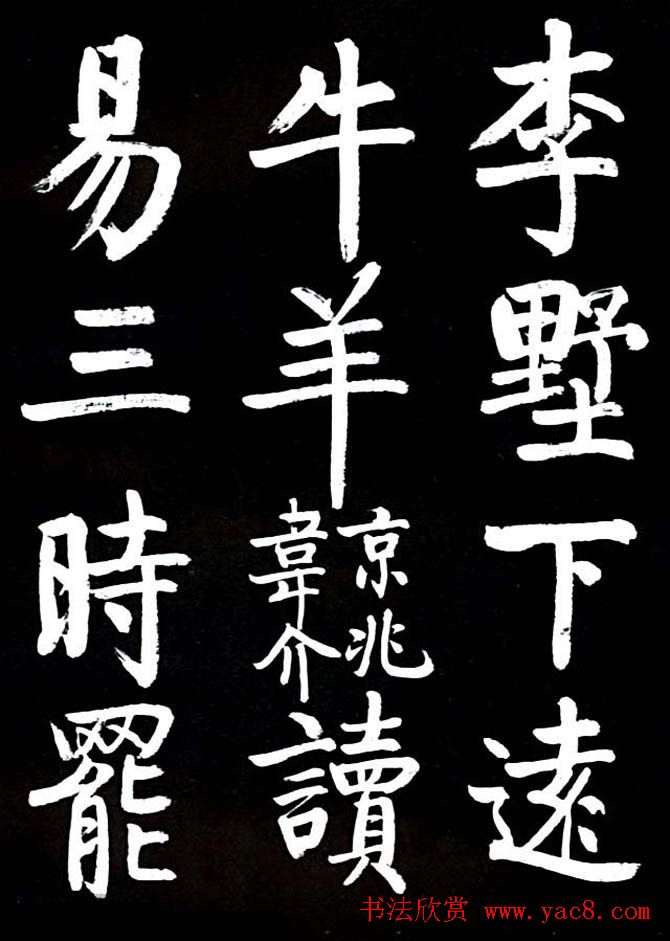 李墅下遠
牛羊
京兆
韋介
讀
易三時罷
书法欣赏 www.yac8.com